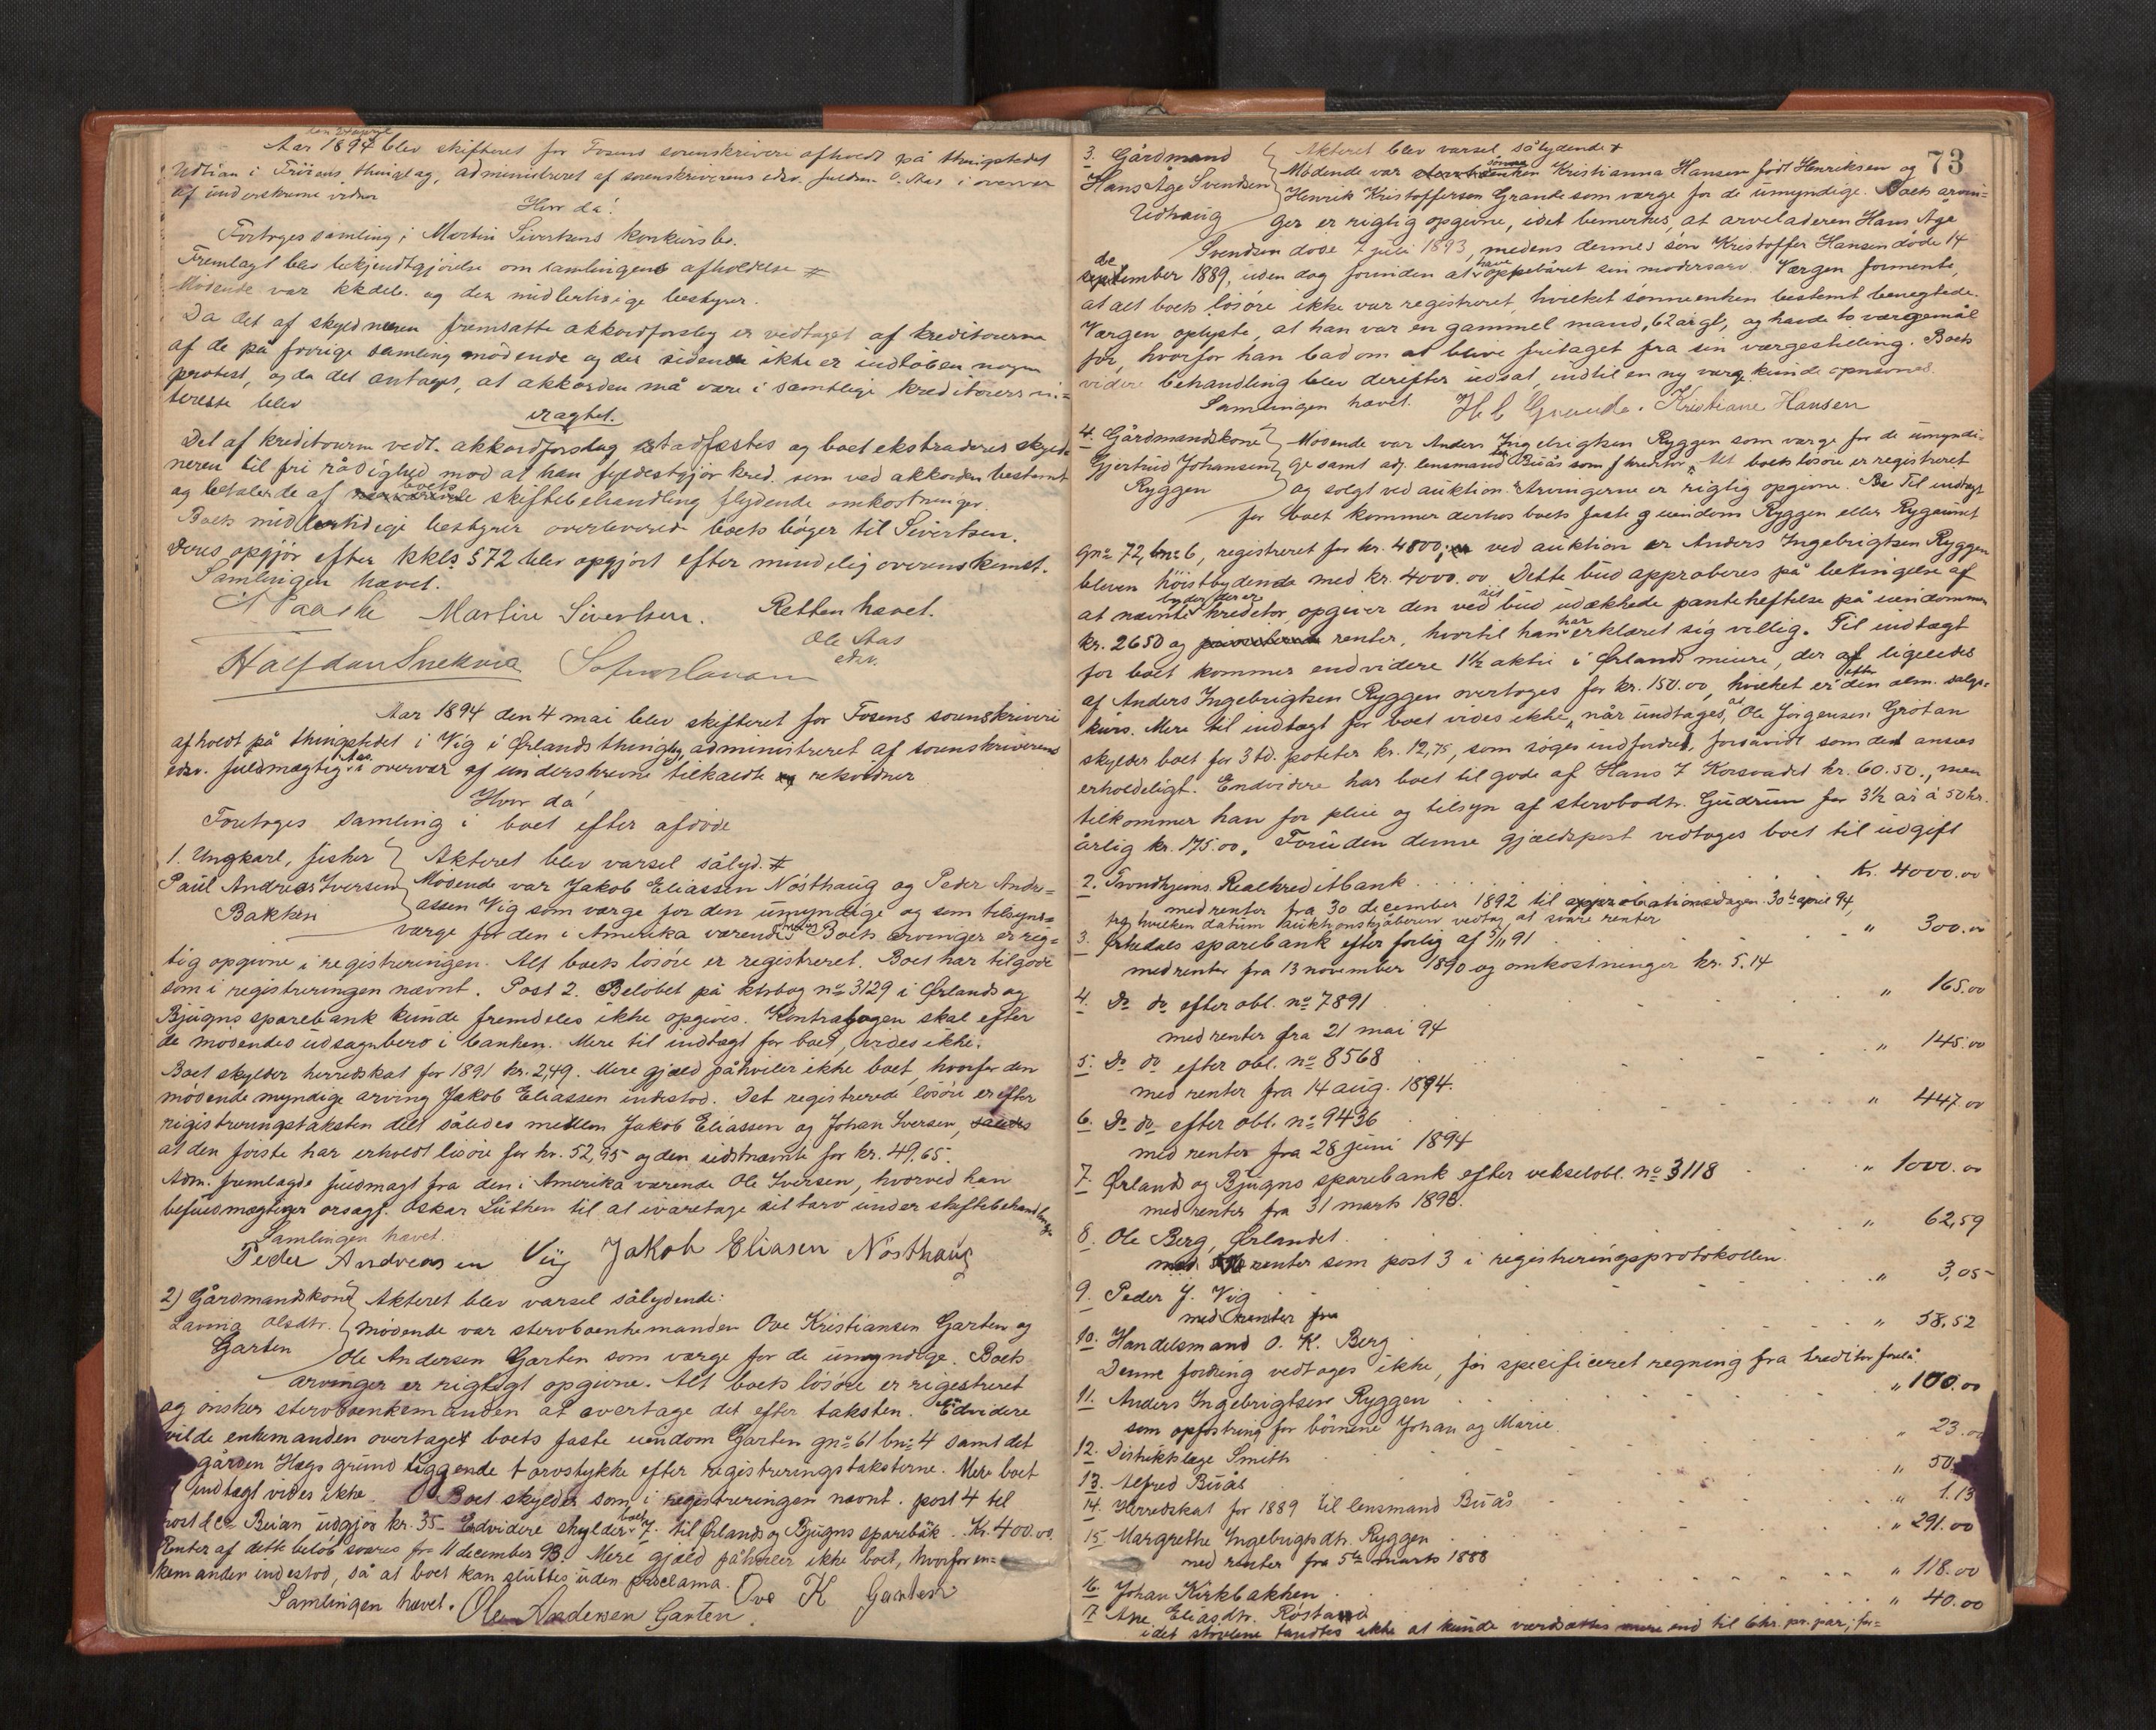 den 24 april
Aar 1894 blev skifteret for Fosens sorenskriveri afholdt på thingstedet
Udtian i Fröiens thinglag, administreret af sorenskriverens edsv. fuldm. O. Aas i overvær
af underskrevne vidner
Hvor da!
Foretoges samling i Martin Sivertsens konkursbo.
Fremlagt blev bekjendtgjörelse om samlingens afholdelse #
Mödende var kkdeb. og den midlertidige bestyrer.
Da det af skyldneren fremsatte akkordforslag er vedtaget af kreditorerne
af de på forrige samling mödende og der siden ikke er indlöben nogen
protest, og da det antages, at akkorden må være i samtlige kreditorers in=
teresse blev
eragtet.
Det af kreditorerne vedt. akkordforslag stadfæstes og boet ekstraderes skyld=
neren til fri rådighed mod at han fyldestgjör kred. som ved akkorden bestemt
og betaler de af boets skiftebehandling flydende omkostninger.
Boets midlertidige bestyrer overleverede boets böger til Sivertsen.
Deres opgjör efter kkls § 72 blev opgjort efter mindelig overenskomst.
Samlingen hævet.
Martin Sivertsen. Retten hævet.
Ole Aas
edsv.
Halfdan Snekvik
Aar 1894 den 4 mai blev skifteret for Fosens sorenskriveri
afholdt på thingstedet i Vig i Ørlands thinglag, administreret af sorenskriverens
edsv. fuldmægtig Aas i overvær af underskrevne tilkaldte retsvidner
Hvor da!
Foretoges samling i boet efter afdöde
1. Ungkarl, fisker Akteret blev varsel sålyd. #
Paul Andreas Iversen Mödende var Jakob Eliassen Nösthaug og Peder Andre=
Bakken assen Vig som værge for den umyndige og som tilsyns=
værge for den i Amerika værende Boets arvinger er rig=
tig opgivne i registreringen. Alt boets lösöre er registreret. Boet har tilgode
som i registreringen nævnt. Post 2. Belöbet på ktrbog no 3129 i Ørlands og
Bjugns sparebank kunde fremdeles ikke opgives. Kontrabogen skal efter
de mödendes udsagn bero i banken. Mere til indtægt for boet, vides ikke.
Boet skylder herredskat for 1891 kr. 2,49. Mere gjæld påhviler ikke boet, hvorfor den
mödende myndige arving Jakob Eliassen indestod. Det registrerede lösöre er efter
registreringstaksten delt således mellem Jakob Eliassen og Johan Iversen,
at den förste har erholdt lösöre for kr. 52,95 og den sidstnævnte for kr. 49.65.
Adm. fremlagde fuldmagt fra den i Amerika værende Ole Iversen, hvorved han
befuldmægtiger orsagf. Oskar Lüthen til at ivaretage sit tarv under skiftebehandlingen
Samlingen hævet.
Peder Andreasen Vig Jakob Eliasen Nösthaug
2) Gårdmandskone Akteret blev varsel sålydende:
Lavina Olsdtr. Mödende var stervboenkemanden Ove Kristiansen Garten og
Garten Ole Andersen Garten som værge for de umyndige. Boets
arvinger er rigtigt opgivne. Alt boets lösöre er registreret
og önsker stervboenkemanden at overtage det efter taksten. Endvidere
vilde enkemanden overtaget boets faste eiendom Garten gno 61 bno 4 samt det
gården Hægs grund liggende torvstykke efter registreringstaksterne. Mere boet
indtægt vides ikke. Boet skylder som i registreringen nævnt. post 4 til
Beian udgjör kr. 35 Endvidere skylder boet 7. til Ørlands og Bjugns sparebk. Kr. 400.00
Renter af dette belöb svares fra 11 december 93. Mere gjæld påhviler ikke boet, hvorfor en=
kemanden indestod, så at boet kan sluttes uden proclama.
Samlingen hævet. Ole Andersen Garten Ove K Garten
73
3. Gårdmand Akteret blev varsel sålydende #
Hans Åge Svendsen Mödende var Kristianna Hansen födt Henriksen og
Udhaug Henrik Kristoffersen Grande som værge for de umyndige. Boets arvin=
ger er rigtig opgivne, idet bemerkes, at arveladeren Hans Åge
Svendsen döde 7 juli 1893, medens dennes sön Kristoffer Hansen döde 14
september 1889, uden dog forinden at have oppebåret sin mödrearv. Værgen formente,
at alt boets lösöre ikke var registreret, hvilket sönneenken bestemt benegtede.
Værgen oplyste, at han var en gammel mand, 62 år gl., og havde to værgemål
för, hvorfor han bad om at blive fritaget fra sin værgestilling. Boets
videre behandling blev derefter udsat, indtil en ny værge kunde opnævnes.
Samlingen hævet. H. C Grande. Kristiane Hansen
4. Gårdmandskone Mödende var Anders Ingebrigtsen Ryggen som værge for de umyndi=
Gjertrud Johansen ge samt adj. lensmand Buås som kreditor. Alt boets lösöre er registreret
Ryggen og solgt ved auktion. Arvingerne er rigtig opgivne. Til indtægt
for boet kommer derhos boets faste eiendom Ryggen eller Rygaunet
gno 72, bno 6, registreret for kr. 4800; ved auktion er Anders Ingebrigtsen Ryggen
bleven höistbydende med kr. 4000.00 Dette bud approberes på betingelse af
at nævnte byder, der er kreditor, opgiver den ved sit bud udækkede panteheftelse på eiendommen
kr. 2650 og renter, hvortil han har erklæret sig villig. Til indtægt
for boet kommer endvidere 1½ aktie i Ørlands meieri, der ligeledes
af Anders Ingebrigtsen Ryggen overtoges for kr. 150.00, hvilket er efter den alm. salgs=
kurs. Mere til indtægt for boet vides ikke, når undtages, at Ole Jörgensen Grötan
skylder boet for 3 td. poteter kr. 12,75, som söges indfordret, forsåvidt som det ansees
erholdeligt. Endvidere har boet tilgode af Hans J Korsvadet kr. 60.50., men
tilkommer han for pleie og tilsyn af stervbodtr. Gudrun for 3½ år à 50 kr.
årlig kr. 175.00. Foruden denne gjældspost vedtoges boet til udgift
2. Trondhjems Realkreditbank Kr. 4000.00
med renter fra 30 december 1892 til approbationsdagen 30te april 94,
fra hvilken datum auktionskjöberen vedtog at svare renter
3. Ørkedals sparebank efter forlig af 5/11 91 " 300.00
med renter fra 13 november 1890 og omkostninger kr. 5.14
4. Do do efter obl. no 7891 " 165.00
med renter fra 21 mai 94
5. Do do efter obl. no 8568 " 145.00
med renter fra 14 aug. 1894.
6. Do do efter obl. no 9436 " 447.00
med renter fra 28 juni 1894
7. Ørlands og Bjugns sparebank efter vekselobl. no 3118 " 1000.00
med renter fra 31 marts 1893.
8. Ole Berg, Ørlandet. " 62,59
med renter som post 3 i registreringsprotokollen
9. Peder J. Vig " 3,05
med renter fra
10. Handelsmand O. K. Berg " 58,52
Denne fordring vedtages ikke, för specificeret regning fra kreditor forelå
11. Anders Ingebrigtsen Ryggen " 100.00
som opfostring for börnene Johan og Marie
12. Distriktslæge Smith " 23.00
13. Alfred Buås " 50
14. Herredskat for 1889 til lensmand Buås " 1.13
15 Margrethe Ingebrigtsdtr. Ryggen " 291.00
med renter fra 5te marts 1888
16. Johan Kirkbakken " 118.00
7. Ane Eliasdtr. Röstand " 40.00
idet stövlene fandtes ikke at kunde værdsættes mere end til 6 kr. pr. par; for=